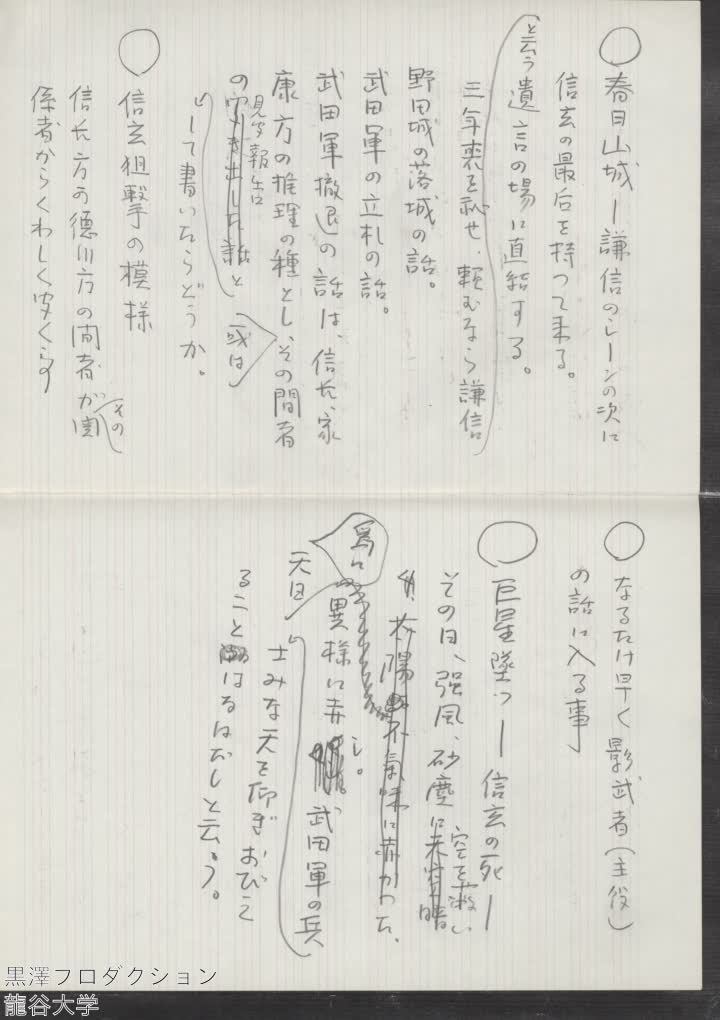 ○ 春日山城―謙信のシーンの次に
信玄の最后を持って来る。
と云う遺言の場に直結する。
三年喪を秘せ、頼むなら謙信
野田城の落城の話。
武田軍の立札の話。
武田軍撤退の話は、信長、家
康方の推理の種とし、その間者
の 見字報告 出した話と
或は
して書いたらどうか。
○ 信玄狙撃の模様
信長方の徳川方の間者が その 関
係者からくわしく聞く
○ なるたけ早く影武者(主役)
の話に入る事
○ 巨星墜つ―信玄の死―
その日、強風、砂塵 空を蔽い
太陽 不氣味に赤かった、
為に
天日 異様に赤し。武田軍の兵
士みな天を仰ぎおびえ
ること はなはだしと云う。
黒澤プロダクション
龍谷大学